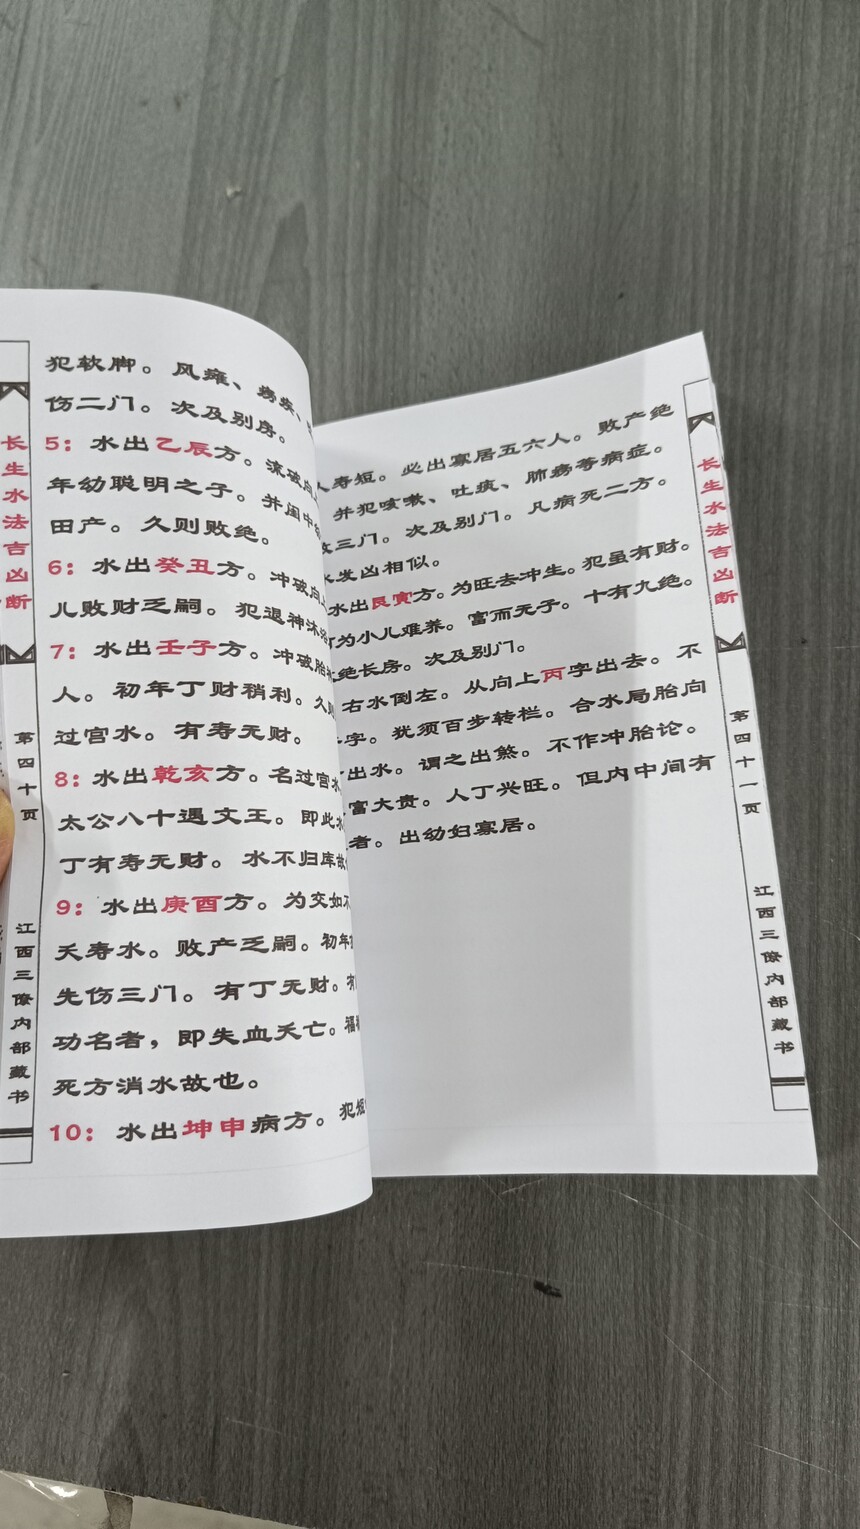 犯软脚。风瘫、痨疾、
伤二门。次及别房。
5：水出乙辰方。流破向上
年幼聪明之子。并闺中
田产。久则败绝。
6：水出癸丑方。冲破向上
儿败财乏嗣。犯退神沐浴
7：水出壬子方。冲破胎
人。初年丁财稍利。久则
过宫水。有寿无财。
8：水出乾亥方。名过宫水
太公八十遇文王。即此水
丁有寿无财。水不归库故
9：水出庚酉方。为交如不
夭寿水。败产乏嗣。初年
先伤三门。有丁无财。有
功名者，即失血夭亡。福
死方消水故也。
10：水出坤申病方。犯短
长生水法吉凶断
第四十页
江西三僚内部藏书
人寿短。必出寡居五六人。败产绝
并犯咳嗽、吐痰、肺痨等病症。
败三门。次及别门。凡病死二方。
水发凶相似。
水出艮寅方。为旺去冲生。犯虽有财。
为小儿难养。富而无子。十有九绝。
绝长房。次及别门。
右水倒左。从向上丙字出去。不
字。犹须百步转栏。合水局胎向
出水。谓之出煞。不作冲胎论。
富大贵。人丁兴旺。但内中间有
者。出幼妇寡居。
长生水法吉凶断
第四十一页
江西三僚内部藏书